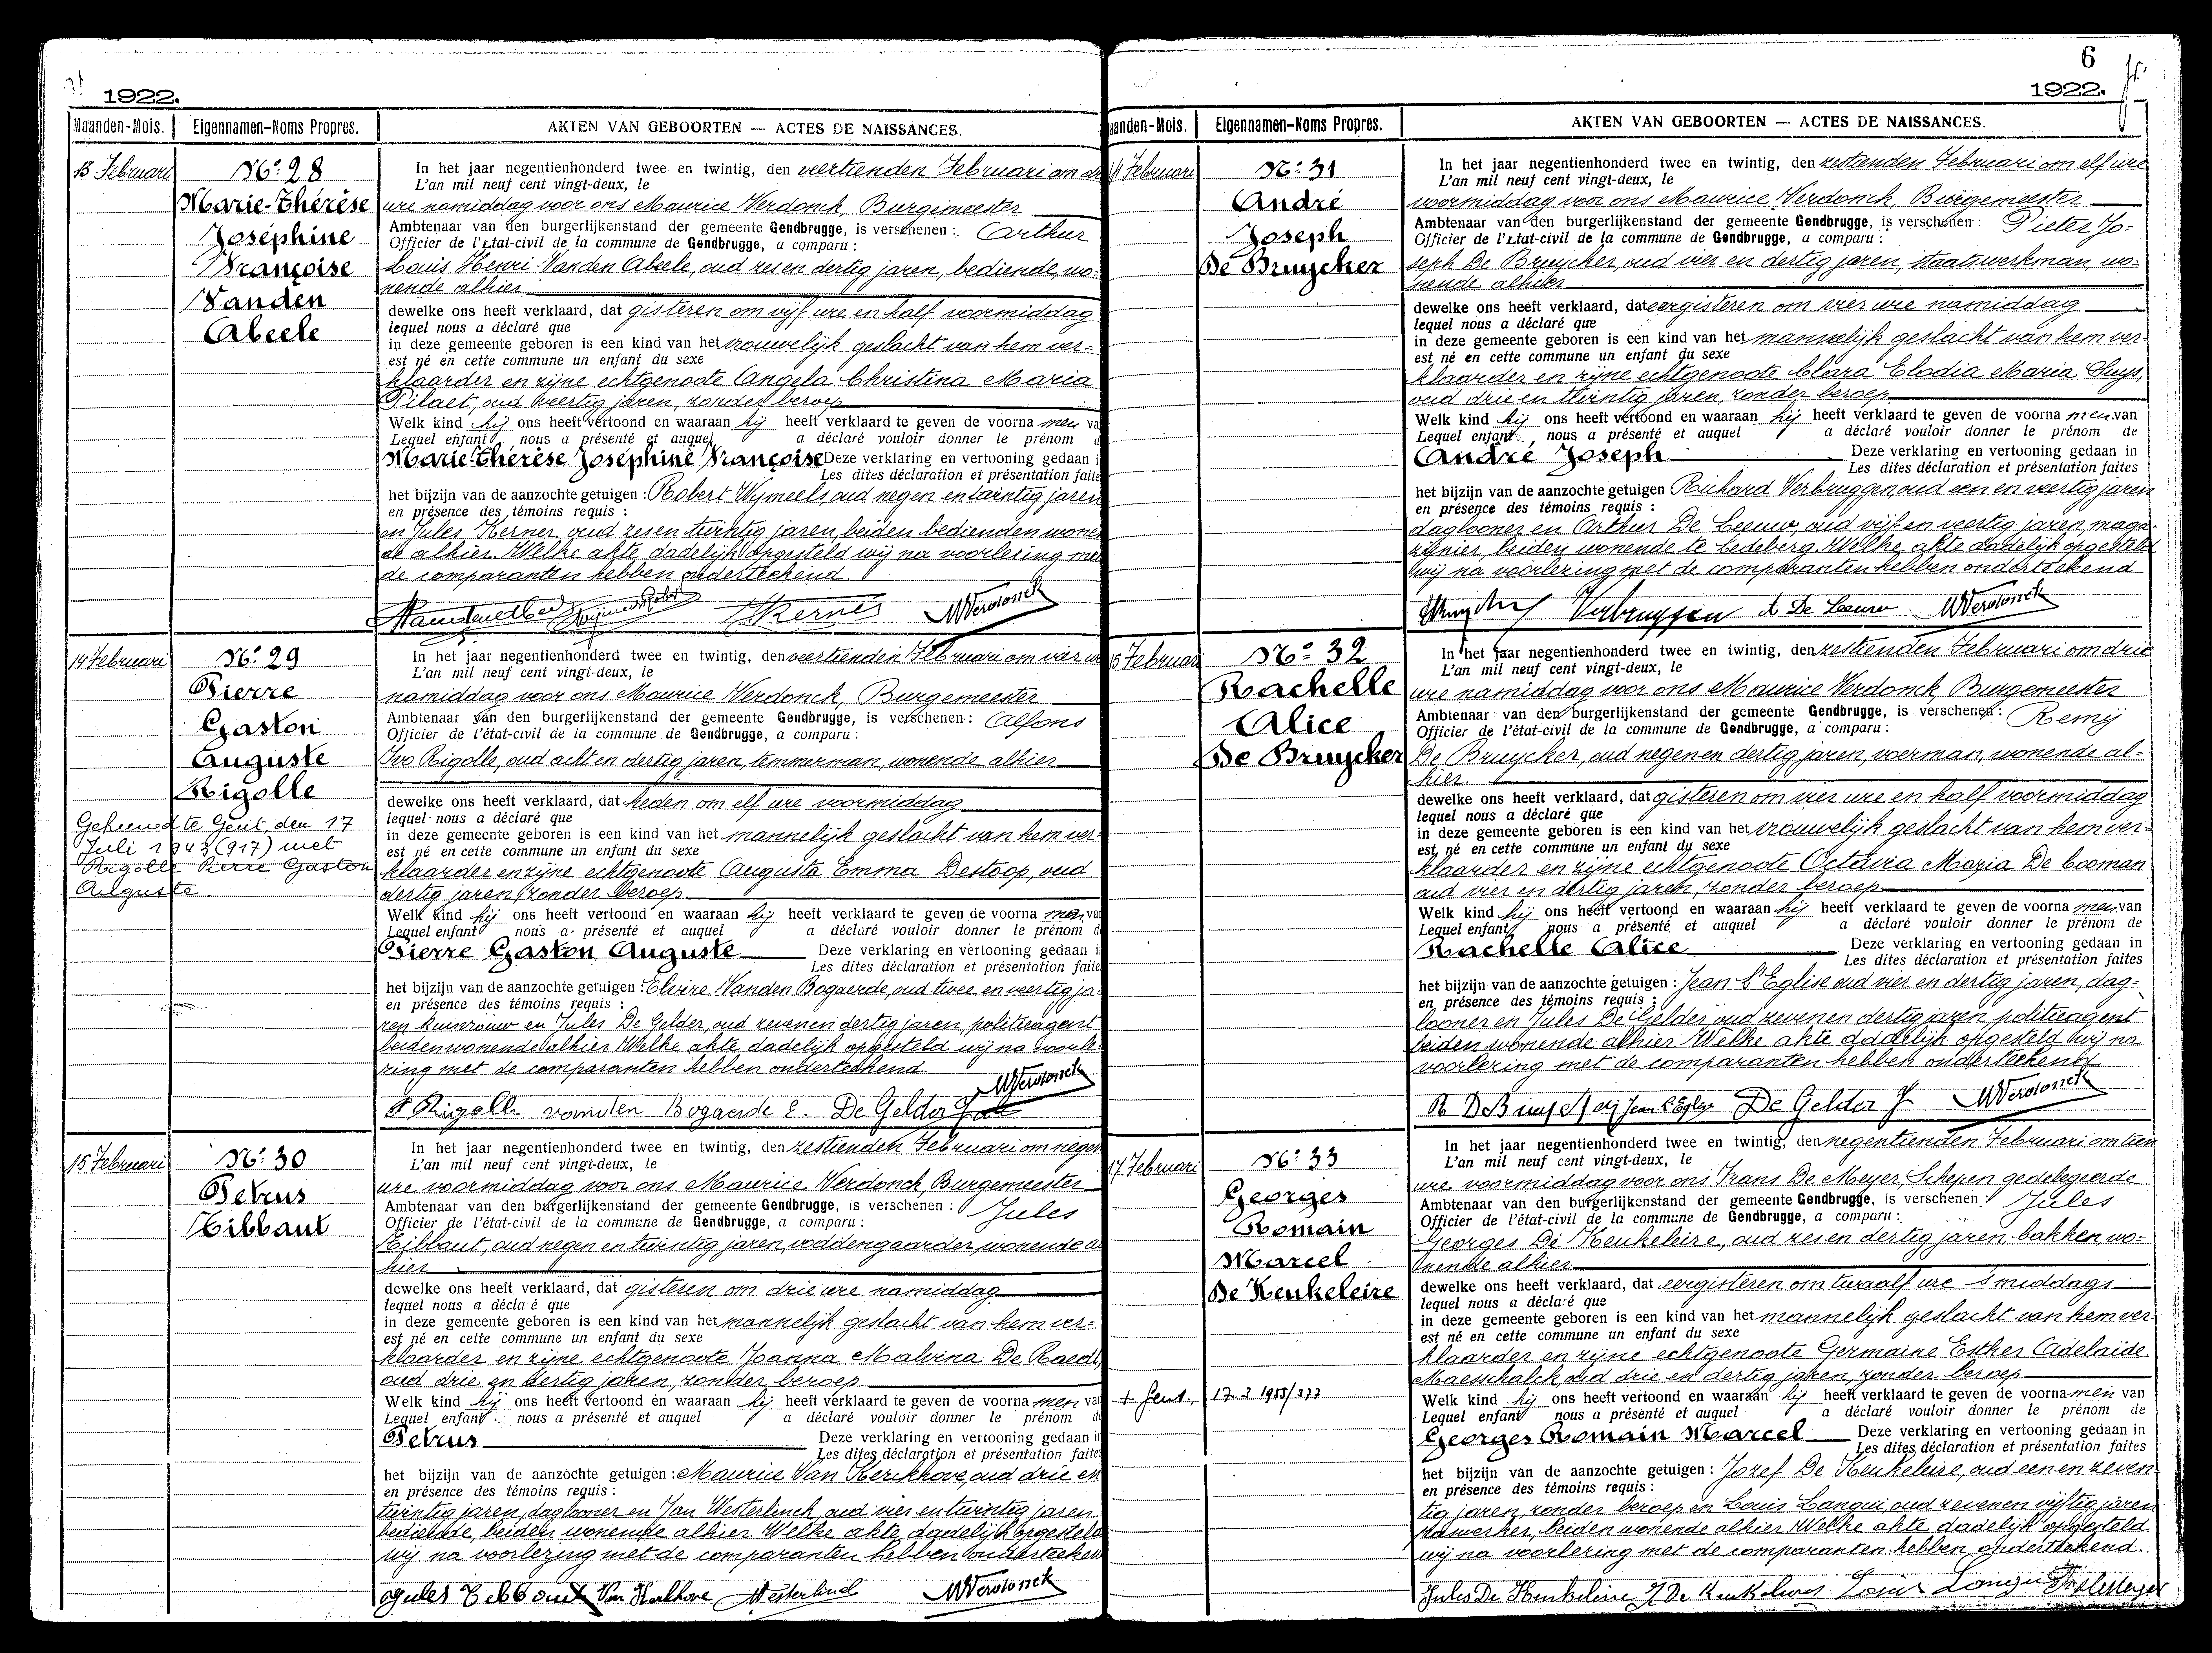 1922.
Maanden-Mois. Eigennamen-Noms Propres. AKTEN VAN GEBOORTEN — ACTES DE NAISSANCES.
13 Februari
No 28
Marie-Thérèse
Joséphine
Françoise
Vanden
Abeele
In het jaar negentienhonderd twee en twintig, den veertienden Februari om
L'an mil neuf cent vingt-deux, le
ure namiddag voor ons Maurice Verdonck, Burgemeester
Ambtenaar van den burgerlijkenstand der gemeente Gendbrugge, is verschenen: Arthur
Officier de l'état-civil de la commune de Gendbrugge, a comparu:
Louis Henri Vanden Abeele, oud zes en dertig jaren, bediende, wo=
nende alhier
dewelke ons heeft verklaard, dat gisteren om vijf ure en half voormiddag
lequel nous a déclaré que
in deze gemeente geboren is een kind van het vrouwelijk geslacht van hem ver=
est né en cette commune un enfant du sexe
klaarder en zijne echtgenoote Angela Christina Maria
Pilaet, oud veertig jaren, zonder beroep
Welk kind hij ons heeft vertoond en waaraan hij heeft verklaard te geven de voorna men va
Lequel enfant nous a présenté et auquel a déclaré vouloir donner le prénom d
Marie-Thérèse Joséphine Françoise Deze verklaring en vertooning gedaan i
Les dites déclaration et présentation faite
het bijzijn van de aanzochte getuigen: Robert Wymeels, oud negen en twintig jaren
en présence des témoins requis:
en Jules Kerner, oud zes en twintig jaren, beiden bedienden wonen
de alhier. Welke akte dadelijk opgesteld wij na voorlezing met
de comparanten hebben onderteekend.
MVerdonck
14 Februari
No 29
Pierre
Gaston
Auguste
Rigolle
Gehuwd te Gent, den 17
Juli 1943 (917) met
Rigolle Pierre Gaston
Auguste
In het jaar negentienhonderd twee en twintig, den veertienden Februari om vier u
L'an mil neuf cent vingt-deux, le
namiddag voor ons Maurice Verdonck, Burgemeester
Ambtenaar van den burgerlijkenstand der gemeente Gendbrugge, is verschenen: Alfons
Officier de l'état-civil de la commune de Gendbrugge, a comparu:
Ivo Rigolle, oud acht en dertig jaren, timmerman, wonende alhier
dewelke ons heeft verklaard, dat heden om elf ure voormiddag
lequel nous a déclaré que
in deze gemeente geboren is een kind van het mannelijk geslacht van hem ver=
est né en cette commune un enfant du sexe
klaarder en zijne echtgenoote Augusta Emma Destoop, oud
dertig jaren, zonder beroep
Welk kind hij ons heeft vertoond en waaraan hij heeft verklaard te geven de voorna men va
Lequel enfant nous a présenté et auquel a déclaré vouloir donner le prénom d
Pierre Gaston Auguste Deze verklaring en vertooning gedaan i
Les dites déclaration et présentation faite
het bijzijn van de aanzochte getuigen: Elvire Vanden Bogaerde, oud twee en veertig ja=
en présence des témoins requis:
ren huisvrouw en Jules De Gelder, oud zeven en dertig jaren, politieagent
beiden wonende alhier. Welke akte dadelijk opgesteld wij na voorle=
zing met de comparanten hebben onderteekend.
MVerdonck
A Rigolle vanden Bogaerde E. De Gelder J
15 Februari
No 30
Petrus
Tibbaut
In het jaar negentienhonderd twee en twintig, den zestienden Februari om negen
L'an mil neuf cent vingt-deux, le
ure voormiddag voor ons Maurice Verdonck, Burgemeester
Ambtenaar van den burgerlijkenstand der gemeente Gendbrugge, is verschenen: Jules
Officier de l'état-civil de la commune de Gendbrugge, a comparu:
Tibbaut, oud negen en twintig jaren, voddengaarder, wonende al
hier
dewelke ons heeft verklaard, dat gisteren om drie ure namiddag
lequel nous a déclaré que
in deze gemeente geboren is een kind van het mannelijk geslacht van hem ver=
est né en cette commune un enfant du sexe
klaarder en zijne echtgenoote Joanna Malvina De Raedt,
oud drie en dertig jaren, zonder beroep
Welk kind hij ons heeft vertoond en waaraan hij heeft verklaard te geven de voorna men va
Lequel enfant nous a présenté et auquel a déclaré vouloir donner le prénom d
Petrus Deze verklaring en vertooning gedaan i
Les dites déclaration et présentation faites
het bijzijn van de aanzochte getuigen: Maurice Van Kerckhove, oud drie en
en présence des témoins requis:
twintig jaren, daglooner en Jan Westerlinck, oud vier en twintig jaren,
bediende, beiden wonende alhier. Welke akte dadelijk opgesteld
wij na voorlezing met de comparanten hebben onderteeken
Jules Tibbaut Van Kerkhove Westerlinck MVerdonck
6
1922.
aanden-Mois. Eigennamen-Noms Propres. AKTEN VAN GEBOORTEN — ACTES DE NAISSANCES.
14 Februari
No 31
André
Joseph
De Bruycker
In het jaar negentienhonderd twee en twintig, den zestienden Februari om elf ure
L'an mil neuf cent vingt-deux, le
voormiddag voor ons Maurice Verdonck, Burgemeester
Ambtenaar van den burgerlijkenstand der gemeente Gendbrugge, is verschenen: Pieter Jo=
Officier de l'état-civil de la commune de Gendbrugge, a comparu:
seph De Bruycker, oud vier en dertig jaren, staatswerkman, wo=
nende alhier
dewelke ons heeft verklaard, dat eergisteren om vier ure namiddag
lequel nous a déclaré que
in deze gemeente geboren is een kind van het mannelijk geslacht van hem ver=
est né en cette commune un enfant du sexe
klaarder en zijne echtgenoote Clara Elodia Maria Suys,
oud drie en twintig jaren, zonder beroep
Welk kind hij ons heeft vertoond en waaraan hij heeft verklaard te geven de voorna men van
Lequel enfant nous a présenté et auquel a déclaré vouloir donner le prénom de
André Joseph Deze verklaring en vertooning gedaan in
Les dites déclaration et présentation faites
het bijzijn van de aanzochte getuigen Richard Verbruggen, oud een en veertig jaren
en présence des témoins requis:
daglooner en Arthur De Leeuw, oud vijf en veertig jaren, maga=
zijnier, beiden wonende te Ledeberg. Welke akte dadelijk opgesteld
wij na voorlezing met de comparanten hebben onderteekend
Verbruggen A De Leeuw MVerdonck
15 Februari
No 32
Rachelle
Alice
De Bruycker
In het jaar negentienhonderd twee en twintig, den zestienden Februari om drie
L'an mil neuf cent vingt-deux, le
ure namiddag voor ons Maurice Verdonck, Burgemeester
Ambtenaar van den burgerlijkenstand der gemeente Gendbrugge, is verschenen: Remij
Officier de l'état-civil de la commune de Gendbrugge, a comparu:
De Bruycker, oud negen en dertig jaren, voerman, wonende al=
hier
dewelke ons heeft verklaard, dat gisteren om vier ure en half voormiddag
lequel nous a déclaré que
in deze gemeente geboren is een kind van het vrouwelijk geslacht van hem ver=
est né en cette commune un enfant du sexe
klaarder en zijne echtgenoote Octavia Maria De Cooman
oud vier en dertig jaren, zonder beroep
Welk kind hij ons heeft vertoond en waaraan hij heeft verklaard te geven de voorna men van
Lequel enfant nous a présenté et auquel a déclaré vouloir donner le prénom de
Rachelle Alice Deze verklaring en vertooning gedaan in
Les dites déclaration et présentation faites
het bijzijn van de aanzochte getuigen: Jean L'Eglise oud vier en dertig jaren, dag=
en présence des témoins requis:
looner en Jules De Gelder oud zeven en dertig jaren, politieagent
beiden wonende alhier. Welke akte dadelijk opgesteld wij na
voorlezing met de comparanten hebben onderteekend
Jean L'Eglise De Gelder J MVerdonck
17 Februari
No 33
Georges
Romain
Marcel
De Keukeleire
+ Gent, 17-2 1955/377
In het jaar negentienhonderd twee en twintig, den negentienden Februari om tien
L'an mil neuf cent vingt-deux, le
ure voormiddag voor ons Frans De Meyer, Schepen gedelegeerde
Ambtenaar van den burgerlijkenstand der gemeente Gendbrugge, is verschenen: Jules
Officier de l'état-civil de la commune de Gendbrugge, a comparu:
Georges De Keukeleire, oud zes en dertig jaren, bakker, wo=
nende alhier
dewelke ons heeft verklaard, dat eergisteren om twaalf ure 's middags
lequel nous a déclaré que
in deze gemeente geboren is een kind van het mannelijk geslacht van hem ver=
est né en cette commune un enfant du sexe
klaarder en zijne echtgenoote Germaine Esther Adelaïde
Maesschalck, oud drie en dertig jaren, zonder beroep
Welk kind hij ons heeft vertoond en waaraan hij heeft verklaard te geven de voorna men van
Lequel enfant nous a présenté et auquel a déclaré vouloir donner le prénom de
Georges Romain Marcel Deze verklaring en vertooning gedaan in
Les dites déclaration et présentation faites
het bijzijn van de aanzochte getuigen: Jozef De Keukeleire, oud een en zeven=
en présence des témoins requis:
tig jaren, zonder beroep en Louis Langui, oud zeven en vijftig jaren
beiden wonende alhier. Welke akte dadelijk opgesteld
wij na voorlezing met de comparanten hebben onderteekend.
Jules De Keukeleire J De Keukeleire Louis Langui